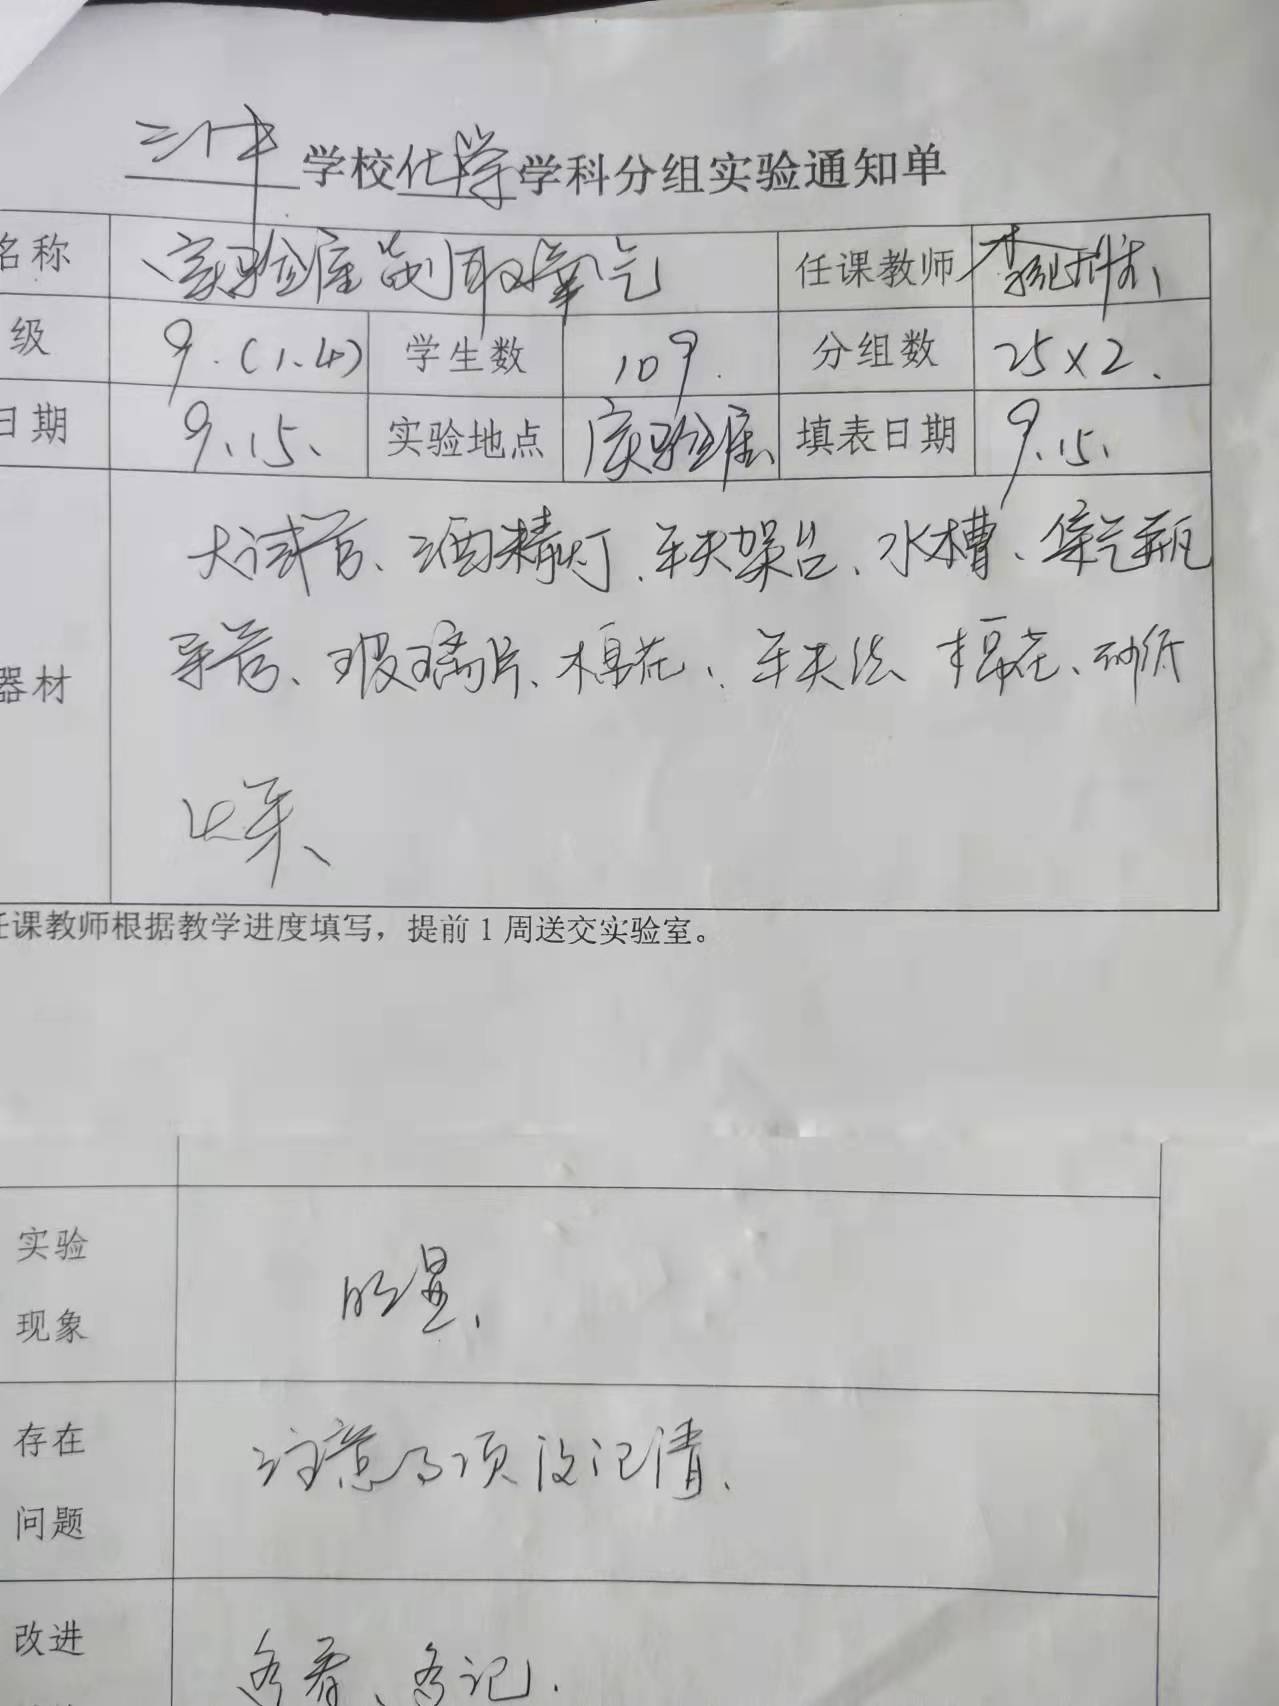 学校化学学科分组实验通知单
名称 实验室制取氧气 任课教师
级 9.(1.4) 学生数 109. 分组数 25×2.
日期 9.15. 实验地点 实验室 填表日期 9.15.
大试管、酒精灯、铁架台、水槽、集气瓶
器材 导管、玻璃片、棉花、 棉花、砂纸
任课教师根据教学进度填写，提前1周送交实验室。
实验
现象 明显.
存在
问题 注意事项没记清.
改进 多看、多记.